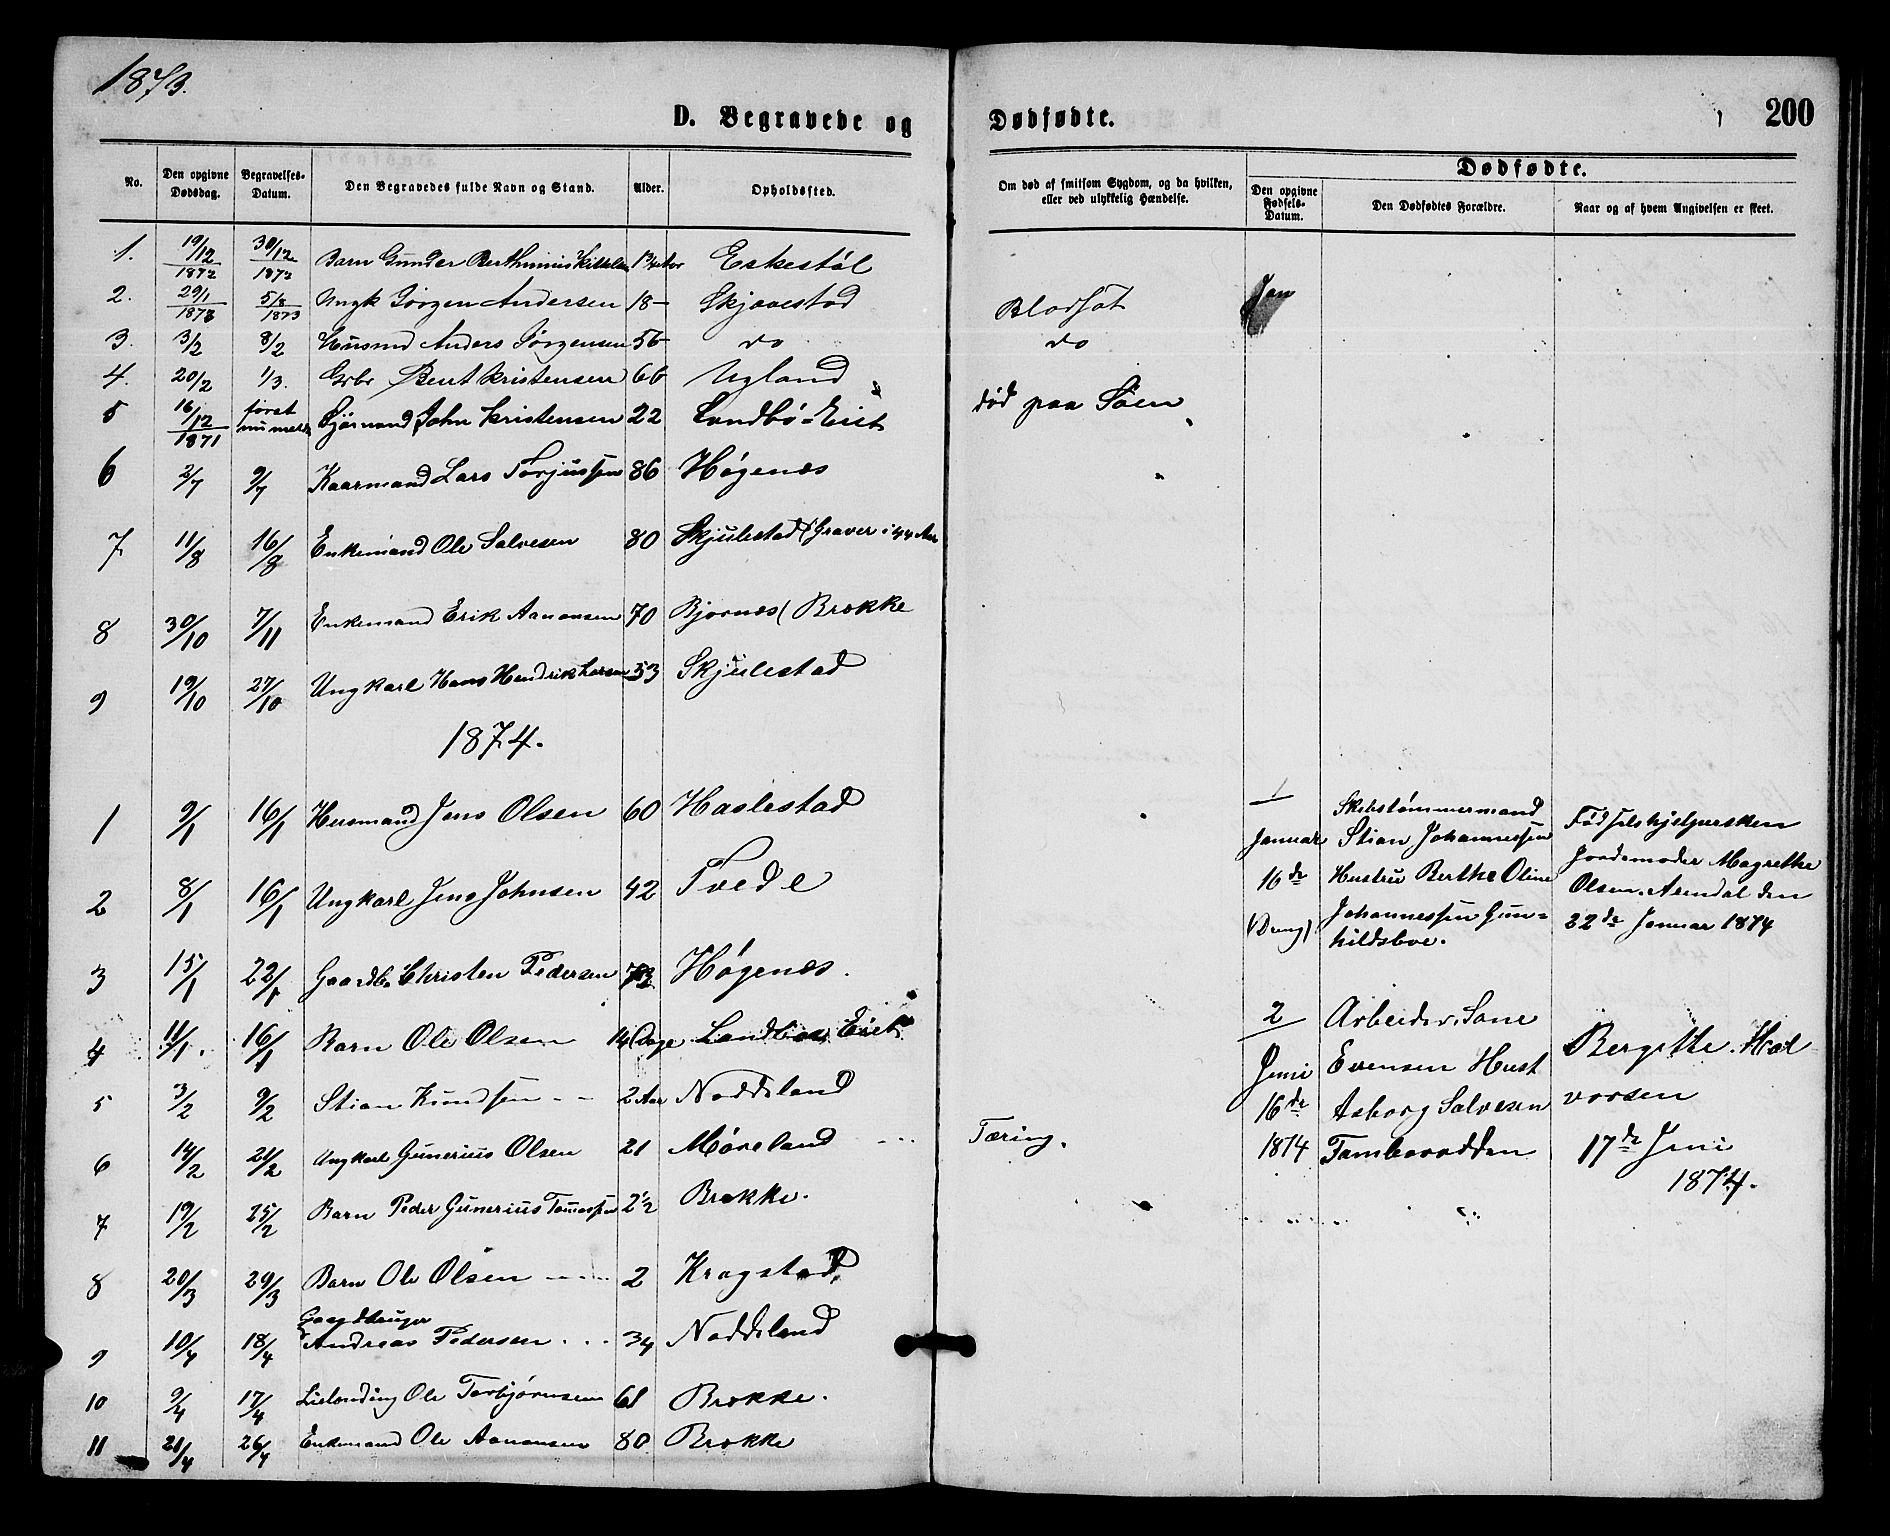 1873.
D. Begravede og Dødfødte. 200
No. Den opgivne Dødsdag. Begravelses-Datum. Den Begravedes fulde Navn og Stand. Alder. Opholdssted.
Om død af smitsom Sygdom, og da hvilken, eller ved ulykkelig Hændelse.
Dødfødte.
Den opgivne Fødsels-Datum. Den Dødfødtes Forældre. Naar og af hvem Angivelsen er skeet.
1. 19/12 1872 30/12 1872 Barn Gunder Berthinius Eskestøl
2. 29/1 1873 1873 Ungk Jørgen Andersen 18 Skjævestad Blodsot Jan
3. 3/2 8/2 Husmd Anders Jørgensen 56 do do
4. 20/2 1/3. Gbr Bent Kristensen 66 Ugland
5 16/12 1871 først nu meldt Sjømand John Kristensen 22 Landbø-Eiet død paa Søen
6 2/7 9/7 Kaarmand Lars Torjussen 86 Høgenæs
7 11/8 16/8 Enkemand Ole Salvesen 80 Skjulestad (Graver i 44 Aar
8 30/10 7/11 Enkemand Erik Aanonsen 70 Bjornæs (Brække
9 19/10 27/10 Ungkarl Hans Hendrik Larsen 53 Skjulestad
1874.
1 9/1 16/1 Husmand Jens Olsen 60 Haslestad
2 8/1 16/1 Ungkarl Jens Johnsen 42 Tvede
3 15/1 22/1 Gaardb. Christen Pedersen Høgenæs.
4 11/1. 16/1 Barn Ole Olsen 14 Dage Landbø Eiet
5 3/2 9/2 Stian Knudsen 2 Aar Nøddeland
6 14/2 21/2 Ungkarl Gunerius Olsen 21 Møreland Tæring.
7 19/2 25/2 Barn Peder Gunerius Tomassen 2½ Brække.
8 20/3 29/3 Barn Ole Olsen 2 Kragstad
9 10/4 18/4 Gaardbruger Andreas Pedersen 34 Nøddeland
10 9/4 17/4 Ole Torbjørnsen 61 Brække.
11 21/4 26/4 Enkemand Ole Aanonsen 80 Brække
1
Januar
16de
(Dreng)
Skibstømmermand
Stian Johannessen
Hustru Berthe Oline
Johannessen Gun=
hildsboe.
Fødselshjelpersken
Jordemoder Magrethe
Olsen. Arendal den
22de Januar 1874
2
Juni
16de
1874
Arbeider
Evensen Hust
Asborg Salvesen
Bergitte. Hal
vorsen
17de Juni
1874.